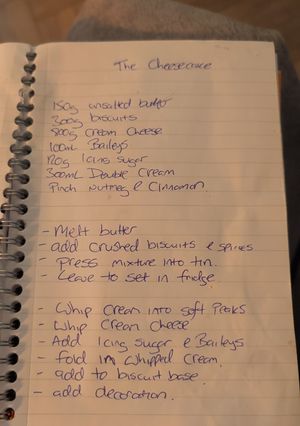 The Cheesecake
150g unsalted butter
300g biscuits
800g Cream Cheese
100mL Baileys
120g Icing Sugar
300mL Double Cream
Pinch Nutmeg & Cinnamon.
- Melt butter
- add crushed biscuits & spices
- Press mixture into tin.
- Leave to set in fridge
- Whip Cream into soft Peaks
- Whip Cream Cheese
- Add Icing sugar & Baileys
- fold in Whipped Cream.
- add to biscuit base
- add decoration.